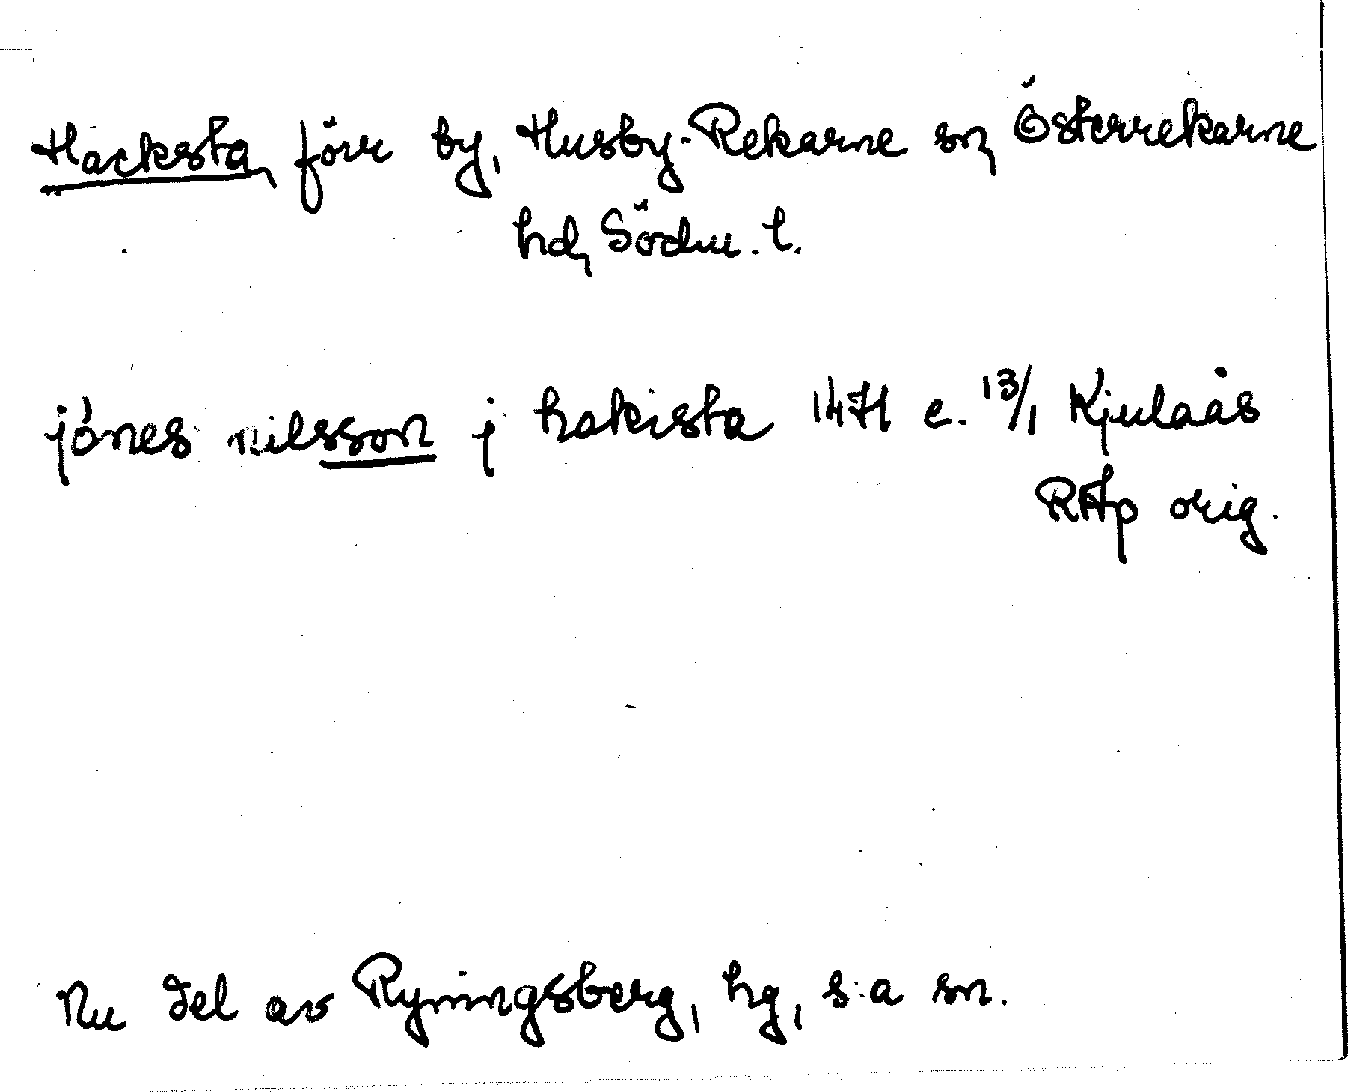 Hacksta, förr by, Husby-Rekarne sn, Österrekarne
hd, Södm. l.
jönes nilsson j hakista 1471 e. 13/1 Kjulaås
RAp orig.
Nu del av Ryningsberg, hg, s:a sn.